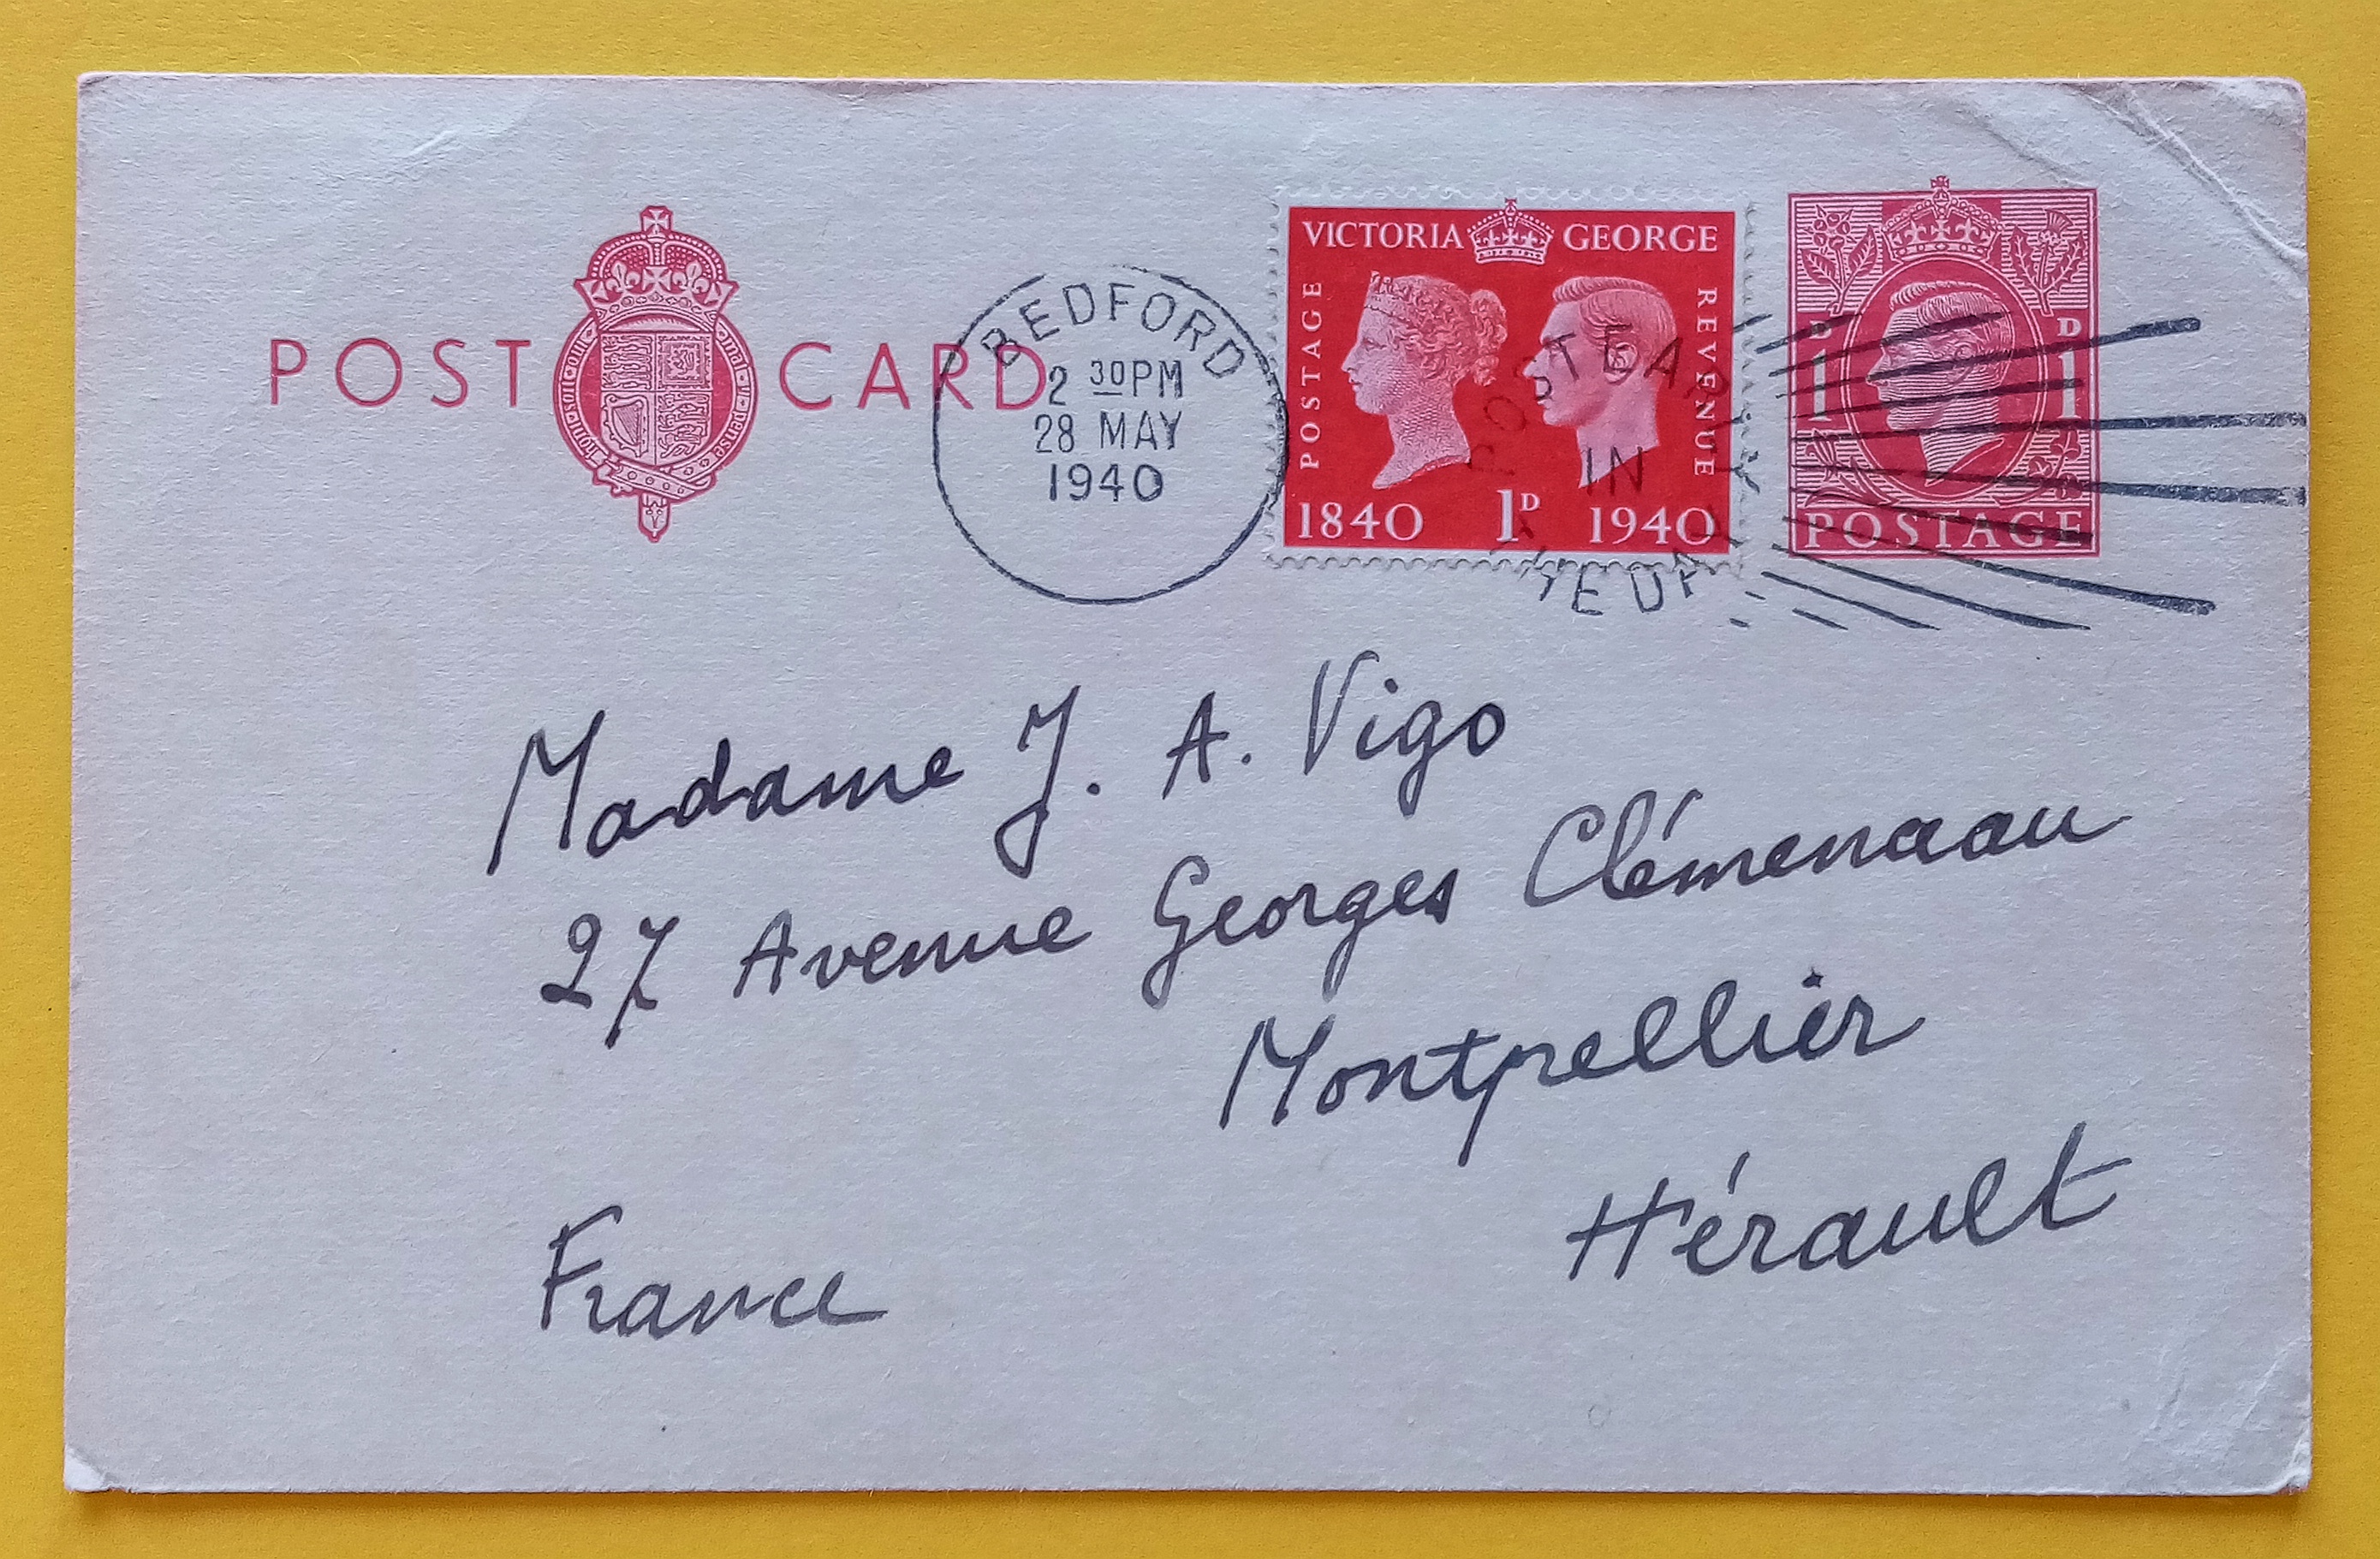 POST CARD
honi·soit·qui mal·y·pense
BEDFORD
2 30PM
28 MAY
1940
VICTORIA GEORGE
POSTAGE
REVENUE
1840 1D 1940
POST EARLY
IN
THE DAY
1D 1D
POSTAGE
Madame J. A. Vigo
27 Avenue Georges Clémenceau
Montpellier
Hérault
France